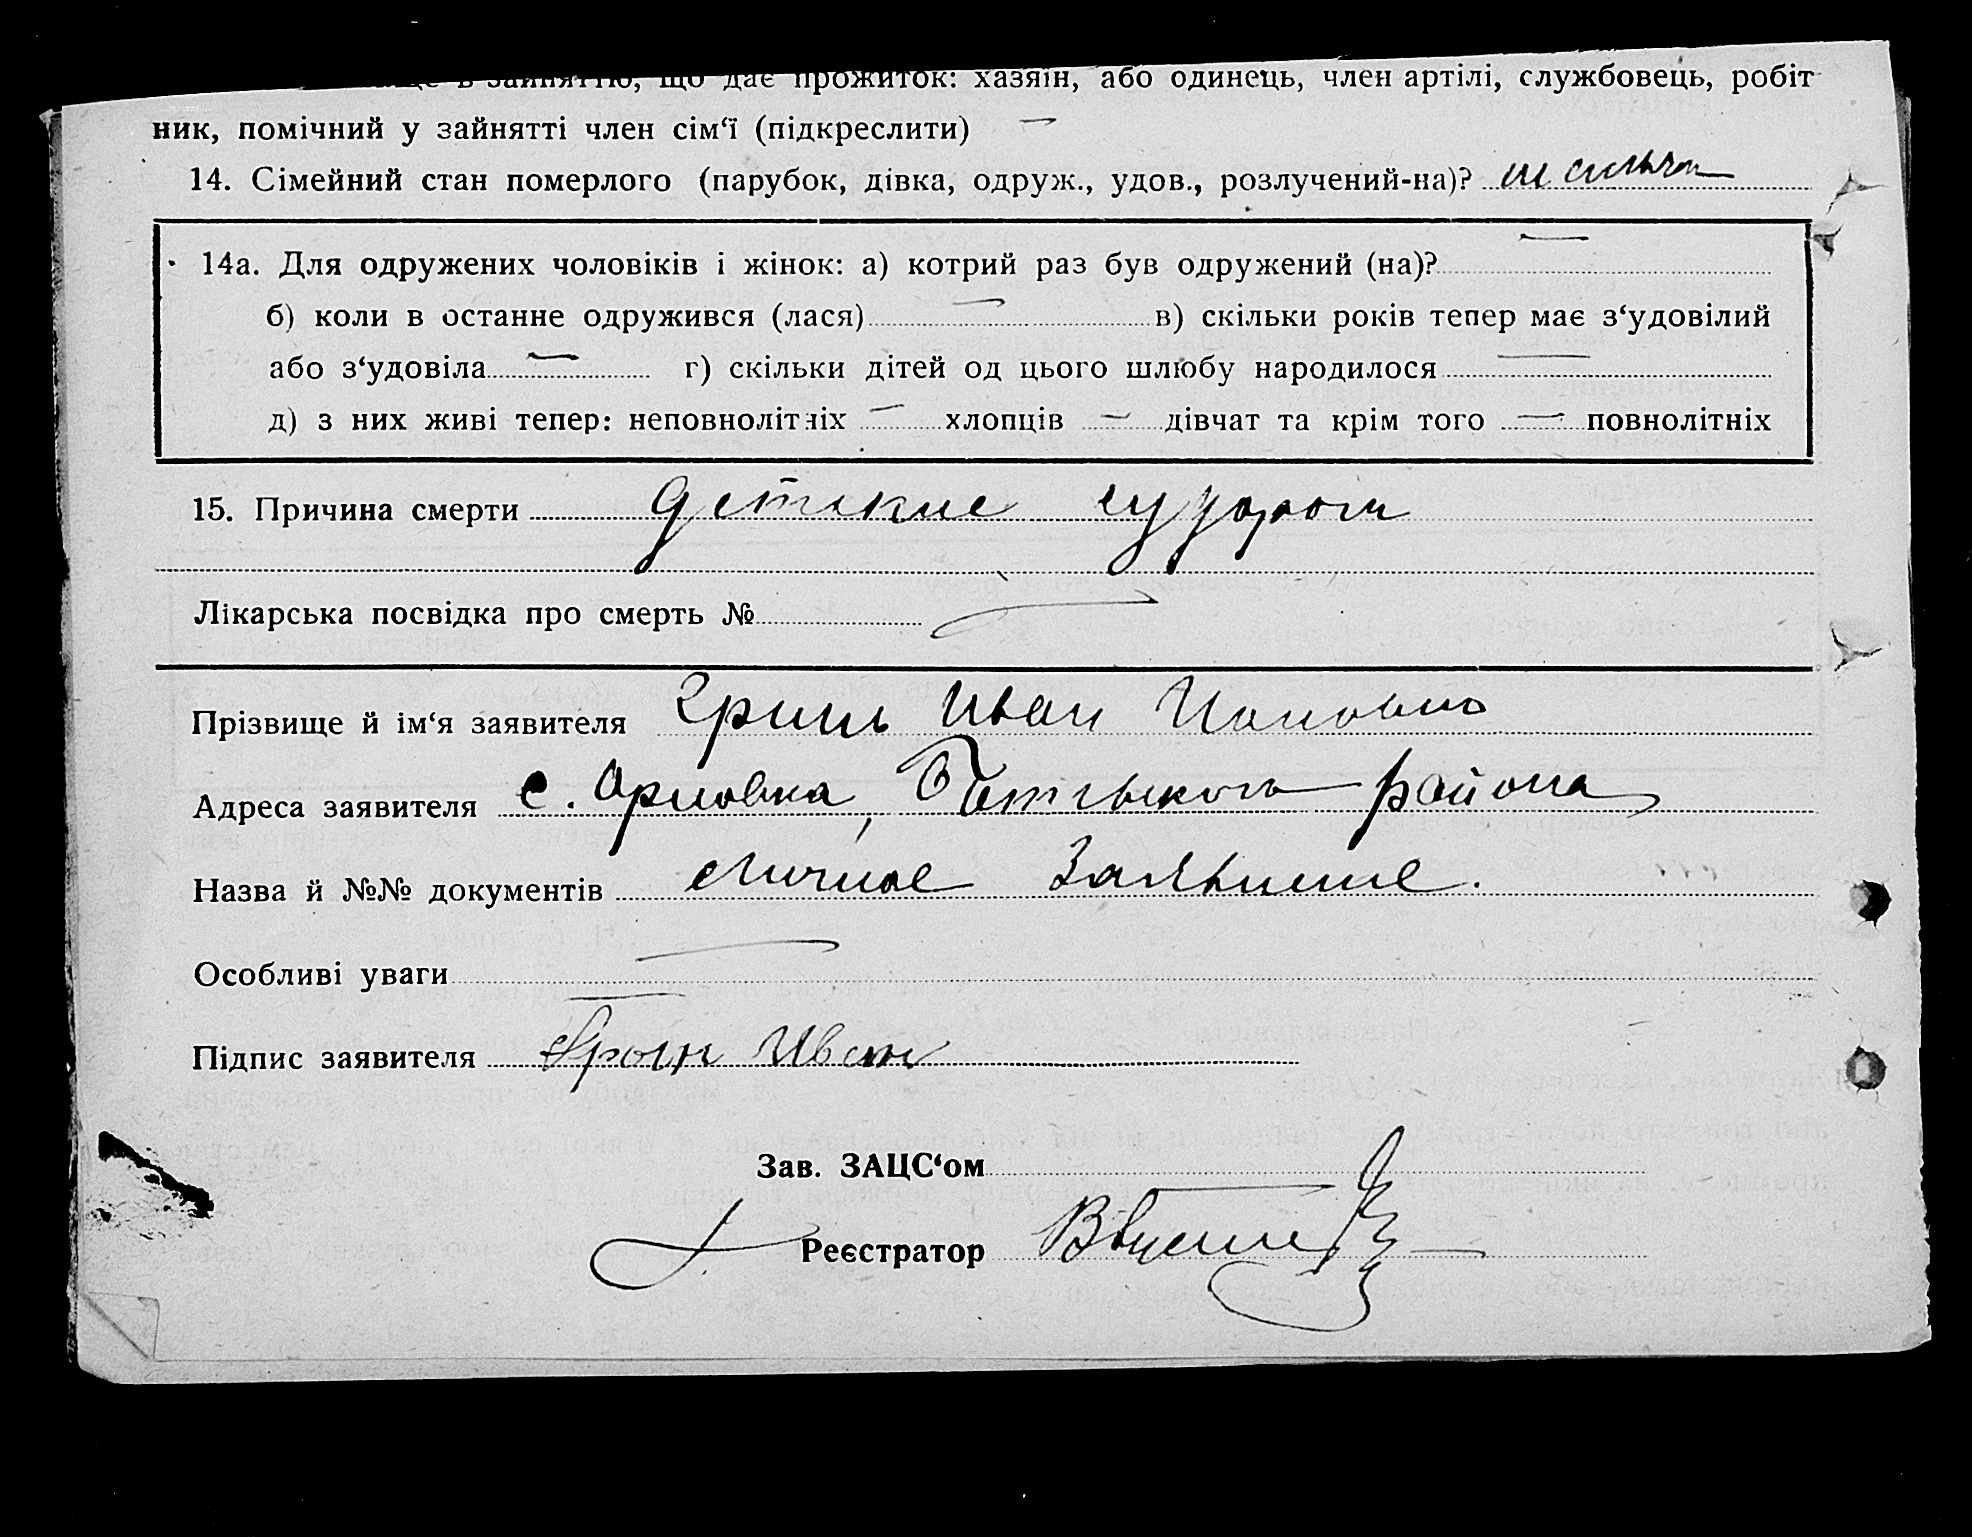 в зайняттю, що дає прожиток: хазяїн, або одинець, член артілі, службовець, робіт
ник, помічний у зайнятті член сім‘ї (підкреслити) —
14. Сімейний стан померлого (парубок, дівка, одруж., удов., розлучений-на)?
14а. Для одружених чоловіків і жінок: а) котрий раз був одружений (на)? —
б) коли в останне одружився (лася) — в) скільки років тепер має з‘удовілий
або з‘удовіла — г) скільки дітей од цього шлюбу народилося —
д) з них живі тепер: неповнолітніх — хлопців — дівчат та крім того — повнолітніх
15. Причина смерти детские судороги
Лікарська посвідка про смерть № —
Прізвище й ім‘я заявителя Иван
Адреса заявителя с. района
Назва й №№ документів личное Заявление.
Особливі уваги —
Підпис заявителя Иван
Зав. ЗАЦС‘ом —
Реєстратор